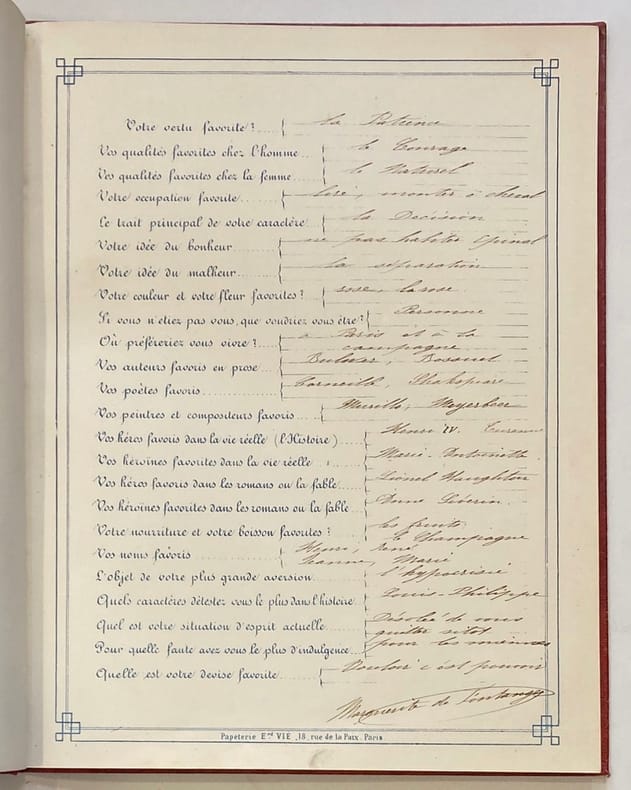 Votre vertu favorite? la Patience
Vos qualités favorites chez l'homme le Courage
Vos qualités favorites chez la femme le Naturel
Votre occupation favorite lire, monter à cheval
Le trait principal de votre caractère la Décision
Votre idée du bonheur ne pas habiter Epinal
Votre idée du malheur la séparation
Votre couleur et votre fleur favorites? rose, la rose
Si vous n'étiez pas vous, que voudriez vous être? Personne
Où préféreriez vous vivre? à Paris et à la
campagne
Vos auteurs favoris en prose Bulwer, Bossuet
Vos poètes favoris Corneille, Shakspeare
Vos peintres et compositeurs favoris Murillo, Meyerbeer
Vos héros favoris dans la vie réelle (l'Histoire) Henri IV. Turenne
Vos héroïnes favorites dans la vie réelle Marie-Antoinette
Vos héros favoris dans les romans ou la fable Lionel Haughton
Vos héroïnes favorites dans les romans ou la fable Anne Séverin
Votre nourriture et votre boisson favorites? les fruits
le Champagne
Vos noms favoris Henri, René
Jeanne, Marie
L'objet de votre plus grande aversion l'hypocrisie
Quels caractères détestez vous le plus dans l'histoire Louis-Philippe
Quel est votre situation d'esprit actuelle Désolée de vous
quitter sitôt
Pour quelle faute avez vous le plus d'indulgence pour les miennes
Quelle est votre devise favorite Vouloir c'est pouvoir
Marguerite de
Papeterie E.nd VIE, 18, rue de la Paix. Paris